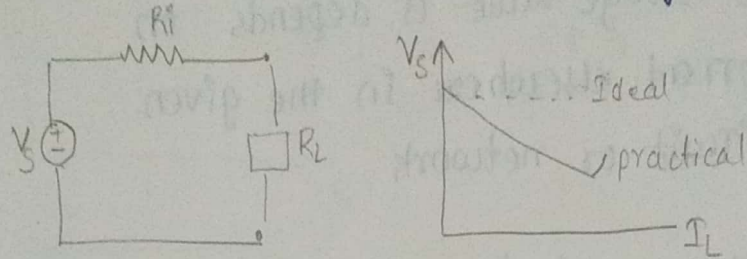 Ri
Vs
RL
Vs
Ideal
practical
IL